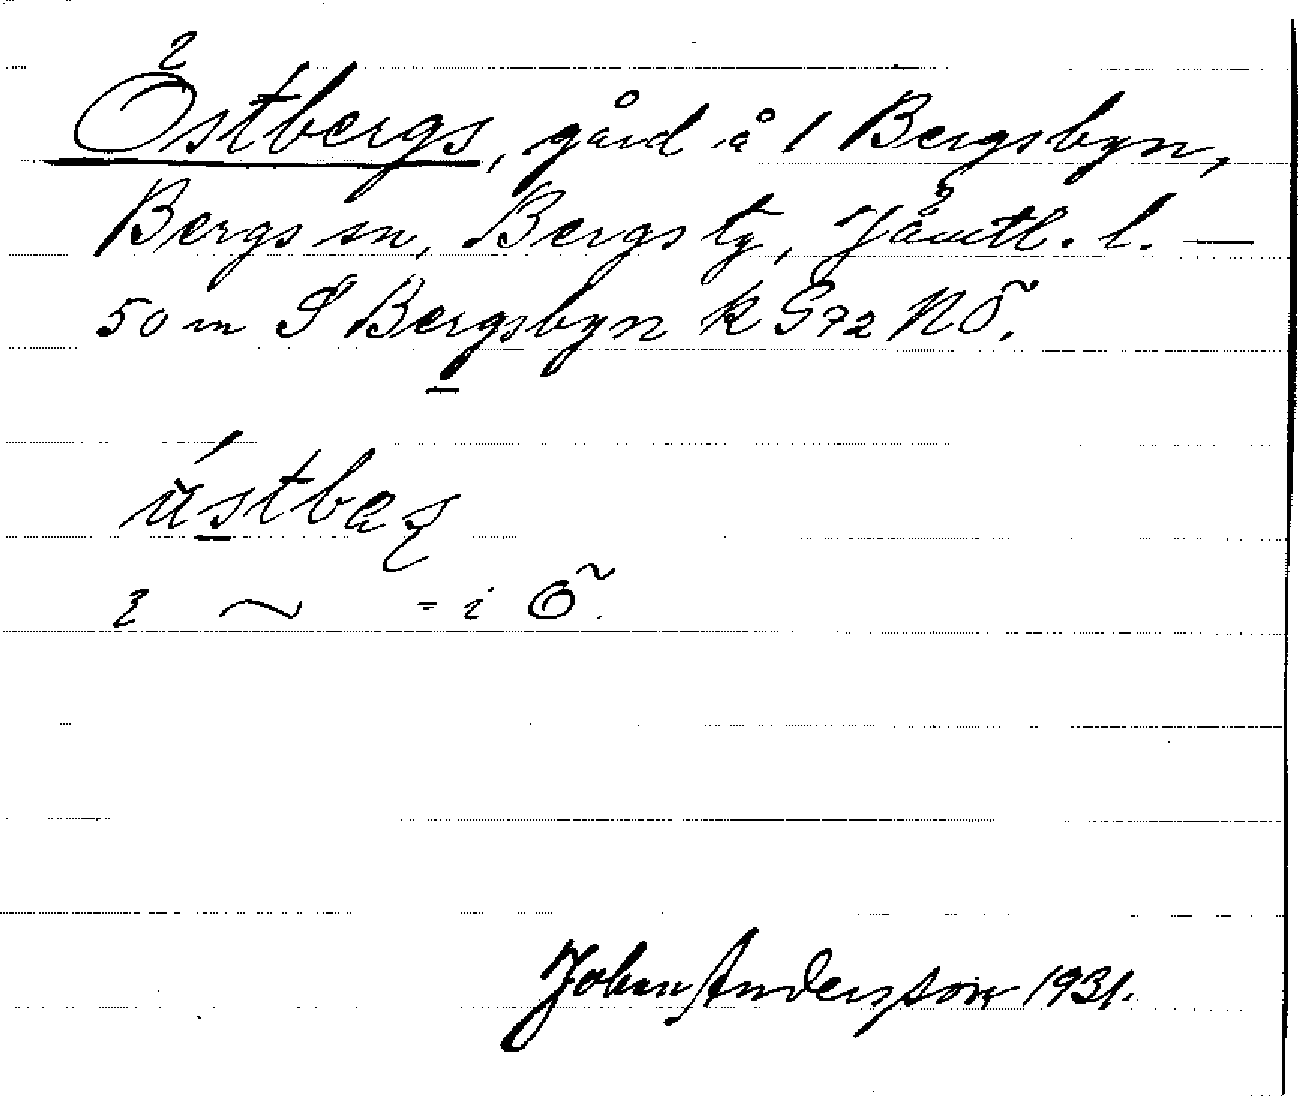 Östbergs, gård å 1 Bergsbyn,
Bergs sn, Bergs tg, Jämtl. l. —
50 m S Bergsbyn k G72 NÖ.
= i Ö.
Johan Andersson 1931.